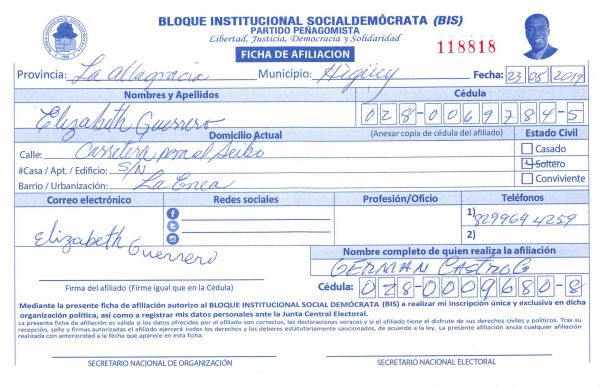 BLOQUE INSTITUCIONAL SOCIALDEMÓCRATA (BIS)
PARTIDO PEÑAGOMISTA
Libertad, Justicia, Democracia y Solidaridad
FICHA DE AFILIACION
118818
Provincia: La altagracia Municipio: Higüey Fecha: 23 05 2019
Nombres y Apellidos Cédula
Elizabeth Guerrero 028-0069784-5
Domicilio Actual (Anexar copia de cédula del afiliado) Estado Civil
Calle: Carretera para el Seibo Casado
#Casa / Apt. / Edificio: S/N Soltero
Barrio / Urbanización: La Enea Conviviente
Correo electrónico Redes sociales Profesión/Oficio Teléfonos
1) 829969 4259
2)
Elizabeth Guerrero
Nombre completo de quien realiza la afiliación
GERMAN CASTRO G
Firma del afiliado (Firme igual que en la Cédula) Cédula: 028-0009680-8
Mediante la presente ficha de afiliación autorizo al BLOQUE INSTITUCIONAL SOCIAL DEMÓCRATA (BIS) a realizar mi inscripción única y exclusiva en dicha
organización política, así como a registrar mis datos personales ante la Junta Central Electoral.
La presente ficha de afiliación es válida si los datos ofrecidos por el afiliado son correctos, las declaraciones veraces y si el afiliado tiene el disfrute de sus derechos civiles y políticos. Tras su
recepción, sello y firmas autorizadas el afiliado ejercerá todos los derechos y los deberes estatutariamente sancionados, de acuerdo a la ley. La presente afiliación anula cualquier afiliación
realizada con anterioridad a la fecha que aparece en esta ficha.
SECRETARIO NACIONAL DE ORGANIZACIÓN SECRETARIO NACIONAL ELECTORAL